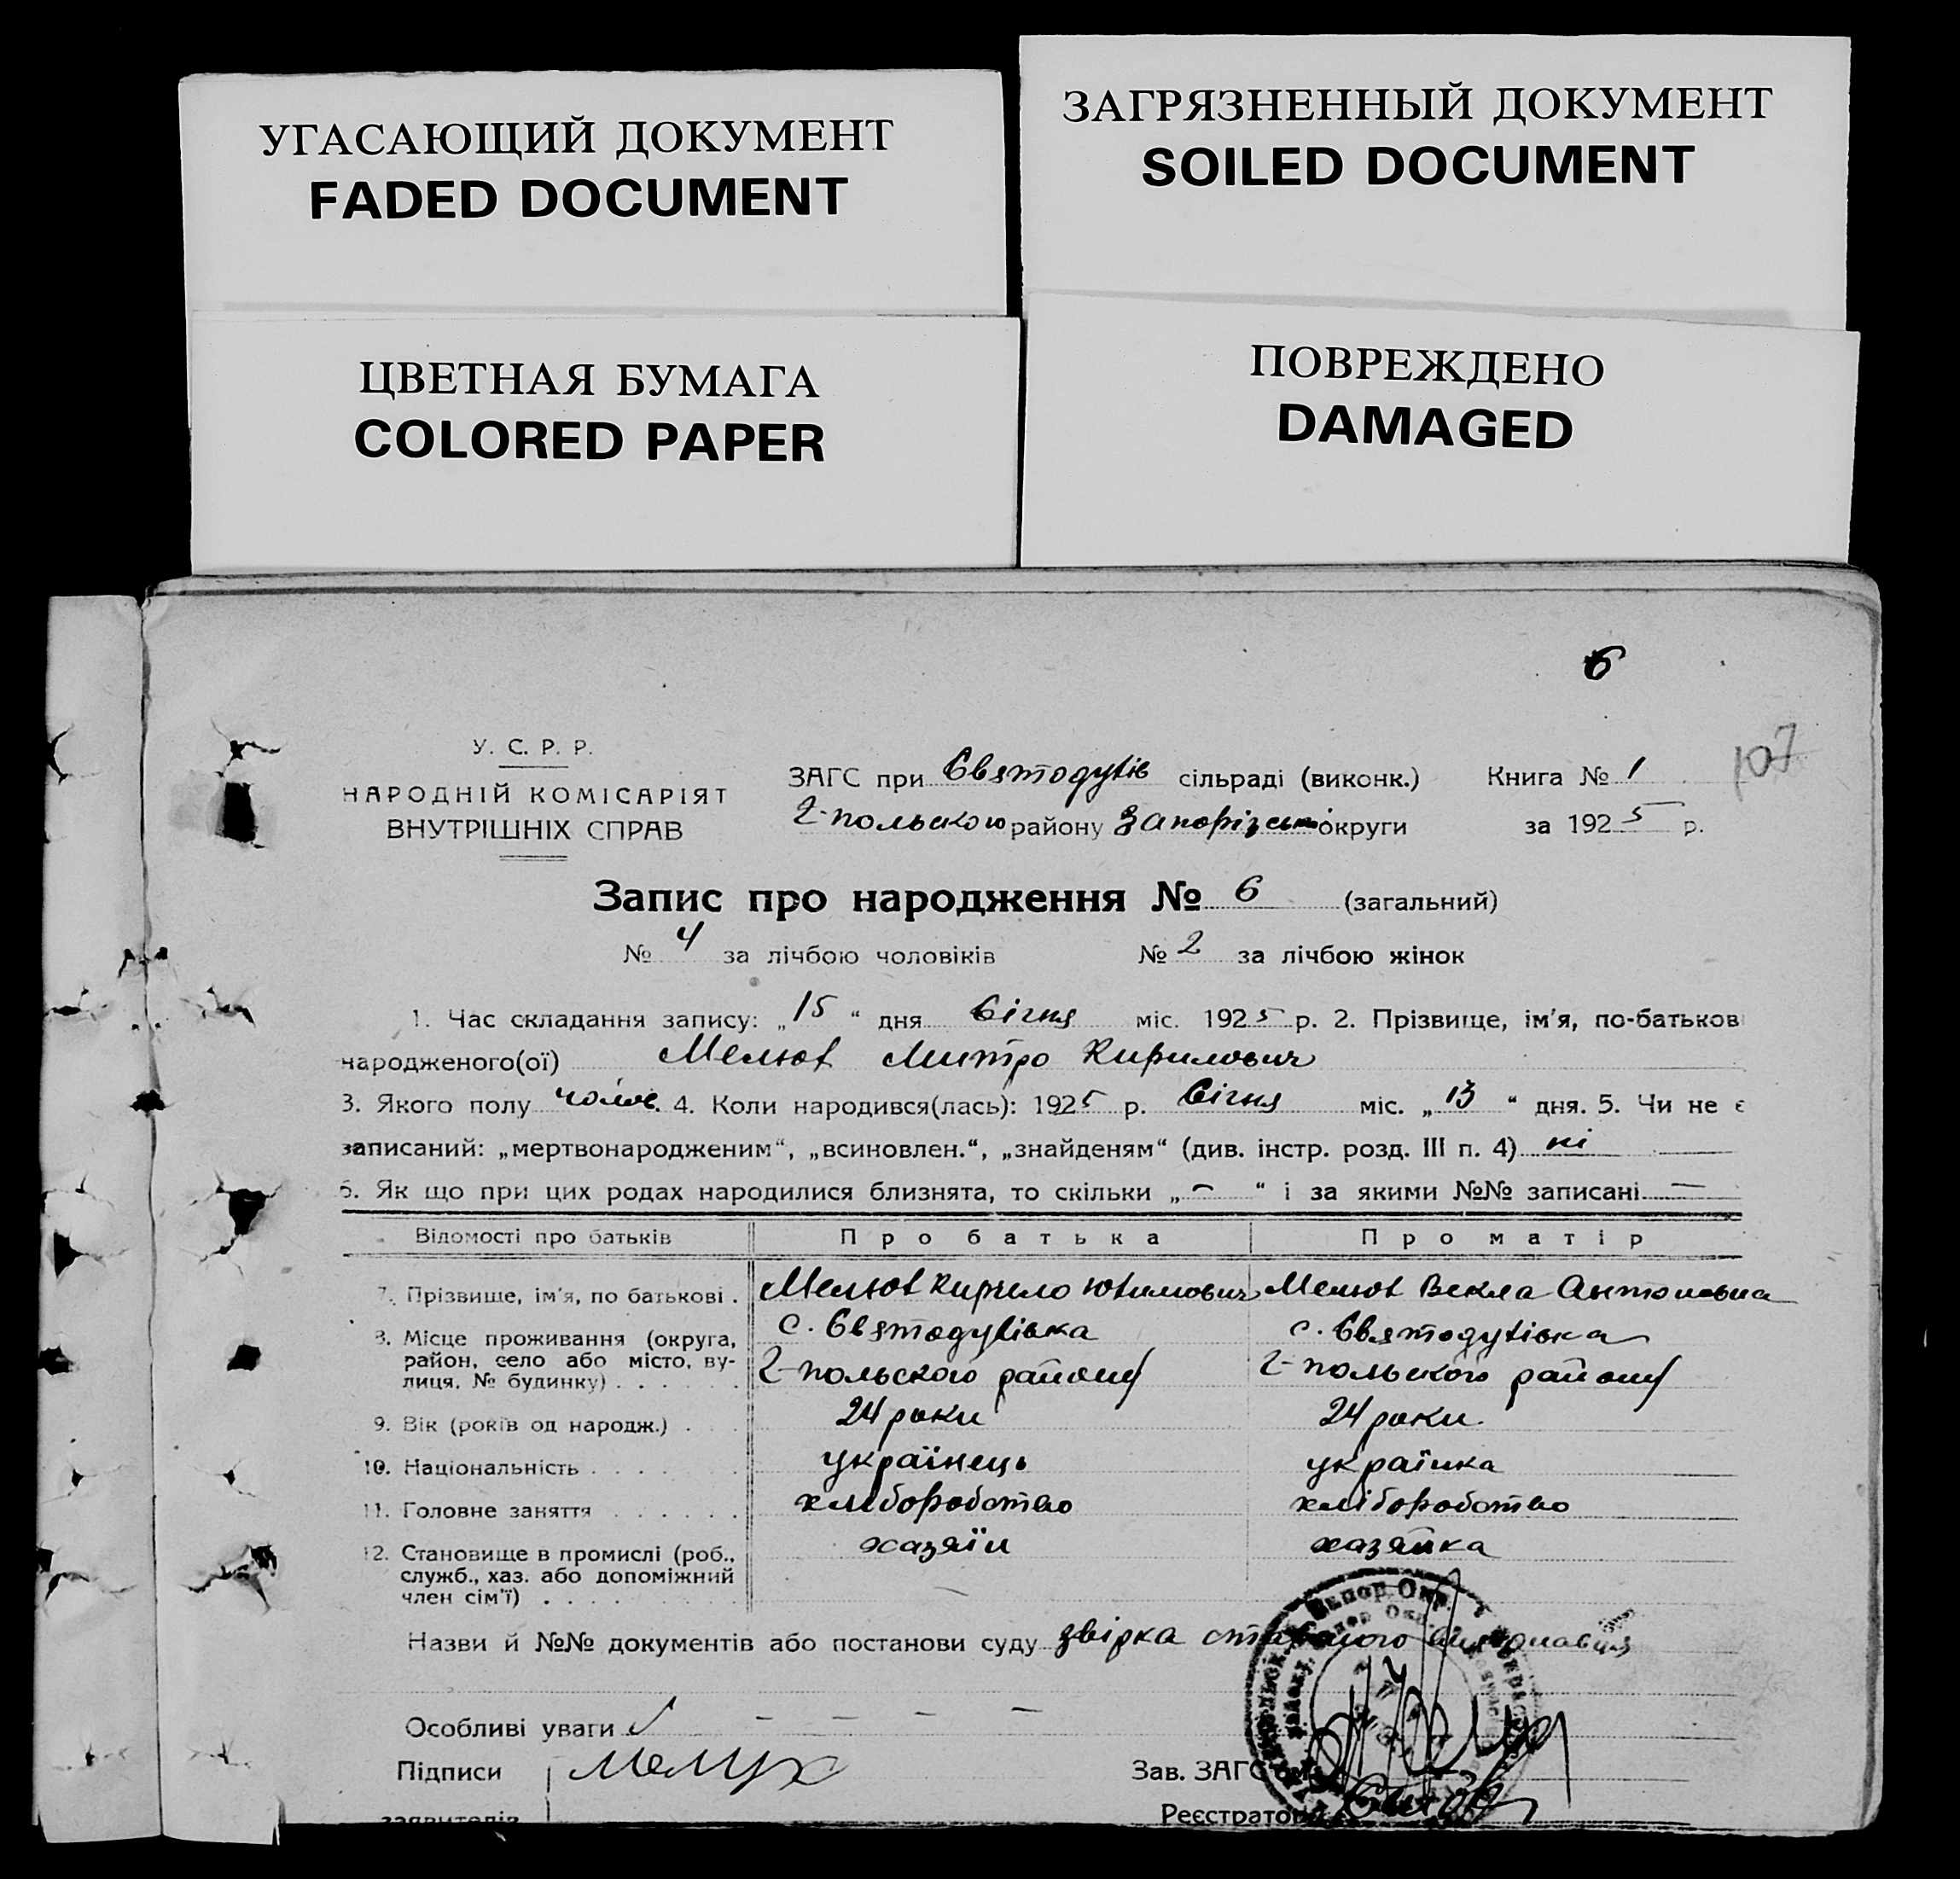 УГАСАЮЩИЙ ДОКУМЕНТ
FADED DOCUMENT
ЗАГРЯЗНЕННЫЙ ДОКУМЕНТ
SOILED DOCUMENT
ЦВЕТНАЯ БУМАГА
COLORED PAPER
ПОВРЕЖДЕНО
DAMAGED
6
107
У. С. Р. Р.
НАРОДНІЙ КОМІСАРІЯТ
ВНУТРІШНІХ СПРАВ
ЗАГС при Святодухів сільраді (виконк.) Книга № 1
Г-польского району Запорізської округи за 1925 р.
Запис про народження № 6 (загальний)
№ 4 за лічбою чоловіків № 2 за лічбою жінок
1. Час складання запису: „15“ дня Січня міс. 1925 р. 2. Прізвище, ім'я, по-батькові
народженого(ої) Мелюх Митро Кирилович
3. Якого полу чолов. 4. Коли народився(лась): 1925 р. Січня міс. „13“ дня. 5. Чи не є
записаний: „мертвонародженим“, „всиновлен.“, „знайденям“ (див. інстр. розд. III п. 4) ні —
6. Як що при цих родах народилися близнята, то скільки „—“ і за якими №№ записані —
Відомості про батьків Про батька Про матір
7. Прізвище, ім'я, по батькові . Мелюх Кирило Юхимович Мелюх Векла Антоновна
8. Місце проживання (округа, район, село або місто, вулиця, № будинку) . . . . . . с. Святодухівка Г-польского району с. Святодухівка Г-польского району
9. Вік (років од народж.) . . . 24 роки 24 роки.
10. Національність . . . . . українець українка
11. Головне заняття . . . . . . хліборобство хліборобство
12. Становище в промислі (роб., служб., хаз. або допоміжний член сім'ї) . . . . хазяїн хазяйка
Назви й №№ документів або постанови суду звірка
Особливі уваги — — — —
Підписи Мелух
заявителів
Зав. ЗАГС'ом
Реєстратор